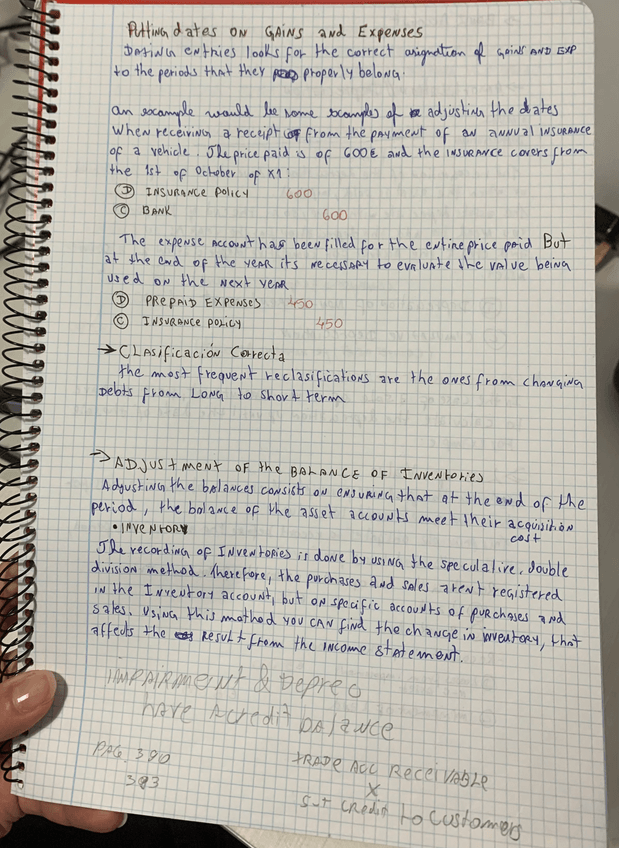 Putting dates on GAINS and Expenses
DATING entries looks for the correct asignation of GAINS AND EXP
to the periods that they properly belong.
An example would be some examples of adjusting the dates
when receiving a receipt from the payment of an annual insurance
of a vehicle. The price paid is of 600€ and the insurance covers from
the 1st of October of X1:
Ⓓ INSURANCE POLICY 600
Ⓒ BANK 600
The expense account has been filled for the entire price paid But
at the end of the year its necessary to evaluate the value being
used on the next year
Ⓓ PREPAID EXPENSES 450
Ⓒ INSURANCE POLICY 450
→ CLASIFICACIÓN CORRECTA
the most frequent reclasifications are the ones from changing
Debts from Long to short term
→ ADJUSTMENT OF the BALANCE OF INVENTORIES
Adjusting the balances consists on ensuring that at the end of the
period, the balance of the asset accounts meet their acquisition
cost
• INVENTORY
The recording of Inventories is done by using the speculative, double
division method. Therefore, the purchases and sales arent registered
in the Inventory account, but on specific accounts of purchases and
sales. Using this method you can find the change in inventory, that
affects the result from the income statement.
IMPAIRMENT & Deprec
have A credit BALANCE
PAG. 390
383
TRADE ACC RECEIVABLE
X
credit to customers